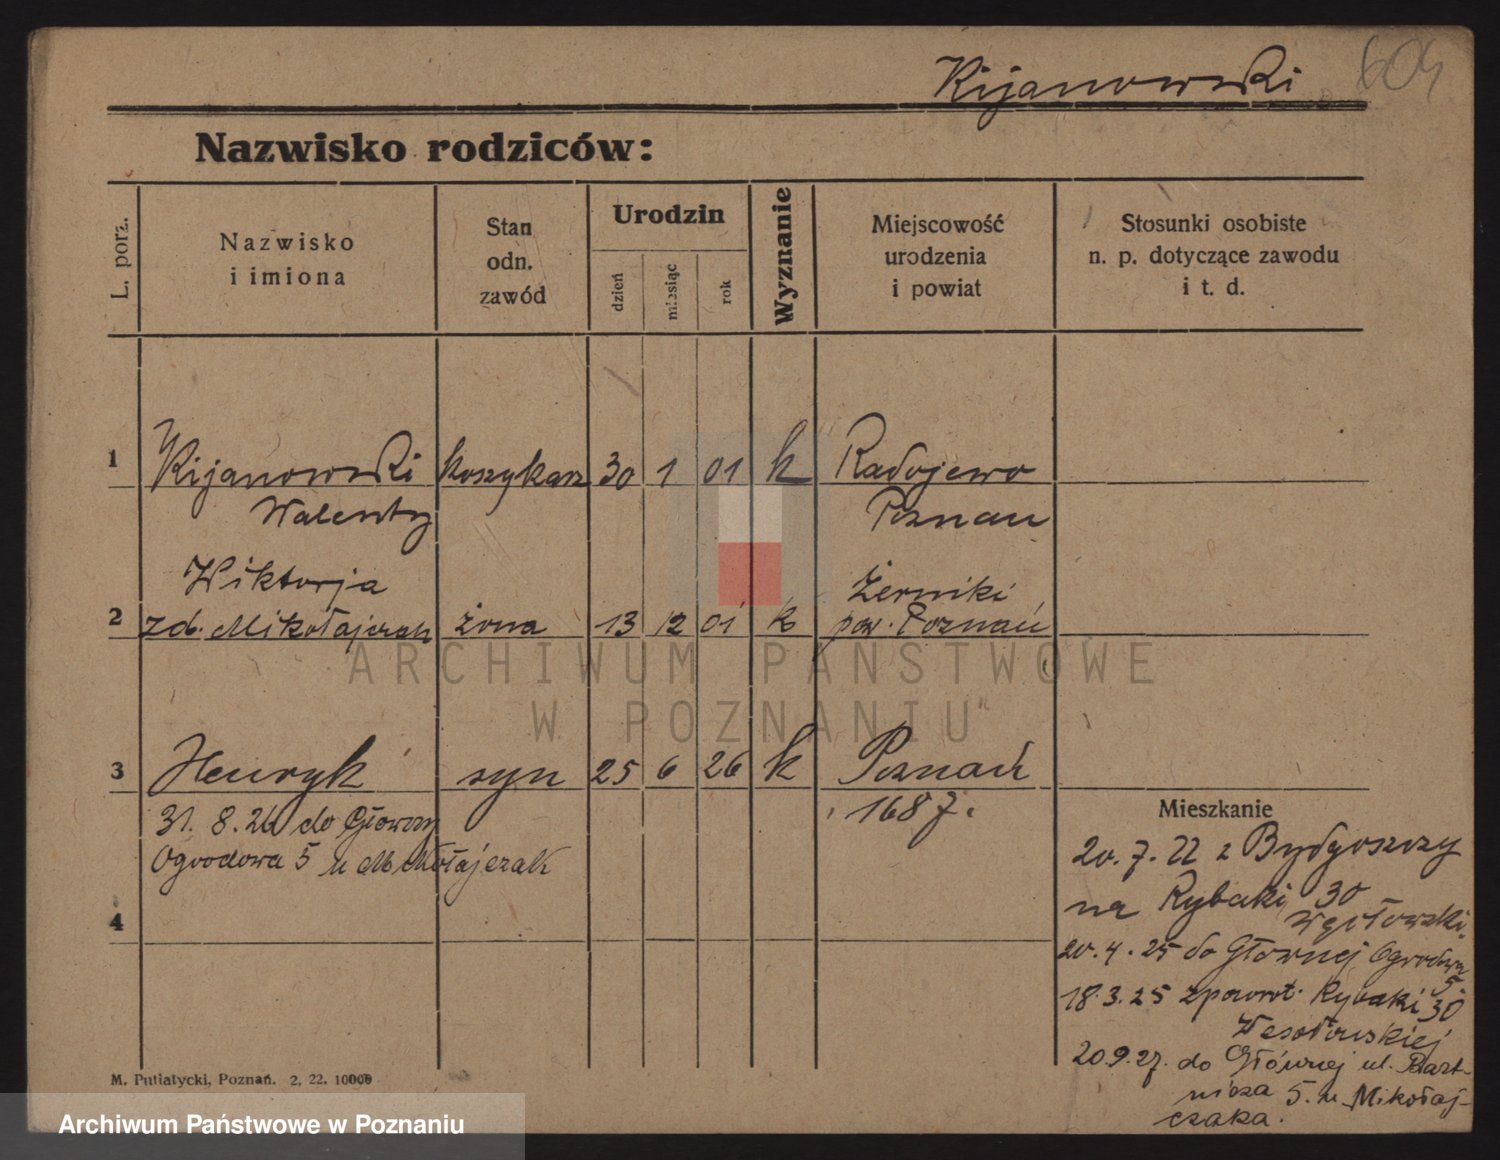 Kijanowski 604
Nazwisko rodziców:
L. porz.
Nazwisko
i imiona
Stan
odn.
zawód
Urodzin
dzień
miesiąc
rok
Wyznanie
Miejscowość
urodzenia
i powiat
Stosunki osobiste
n. p. dotyczące zawodu
i t. d.
1 Kijanowski koszykarz 30 1 01 k Radojewo
Walenty Poznań
Wiktorja Żerniki
2 zd. Mikołajczak żona 13 12 01 k pow. Poznań
3 Henryk syn 25 6 26 k Poznań
1687.
31. 8. 26 do Główny
Ogrodowa 5 u Mikołajczak
4
Mieszkanie
20. 7. 22 z Bydgoszczy
na Rybaki 30
20. 4. 25 do Głównej Ogrodowa
5.
18. 3. 25 zpowrot. Rybaki 30
Wesołowskiej
20.9.27. do Głównej ul. Bart-
nicza 5. u Mikołaj-
czaka.
M. Putiatycki, Poznań. 2, 22. 10000
ARCHIWUM PAŃSTWOWE
W POZNANIU
Archiwum Państwowe w Poznaniu